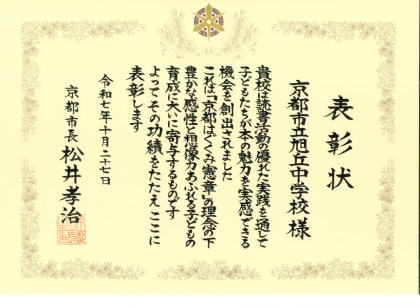 表彰状
京都市立旭丘中学校様
貴校は読書活動の優れた実践を通して
子どもたちが本の魅力を実感できる
機会を創出されました
これは「京都はぐくみ憲章」の理念の下
豊かな感性と想像力あふれる子どもの
育成に大いに寄与するものです
よってその功績をたたえここに
表彰します
令和七年十月二十七日
京都市長 松井孝治